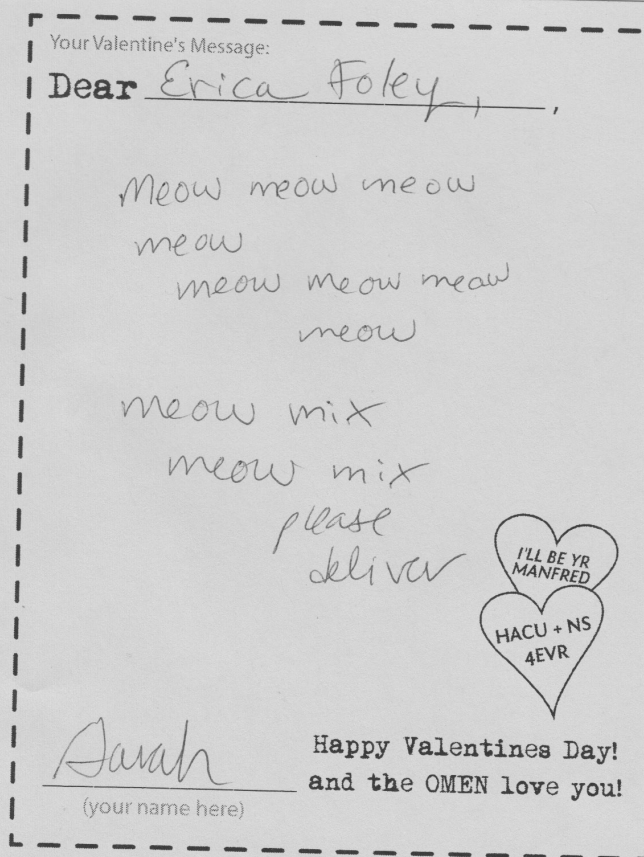 Your Valentine's Message:
Dear Erica Foley, ,
Meow meow meow
meow
meow meow meow
meow
meow mix
meow mix
please
deliver
I'LL BE YR
MANFRED
HACU + NS
4EVR
Sarah
(your name here)
Happy Valentines Day!
and the OMEN love you!